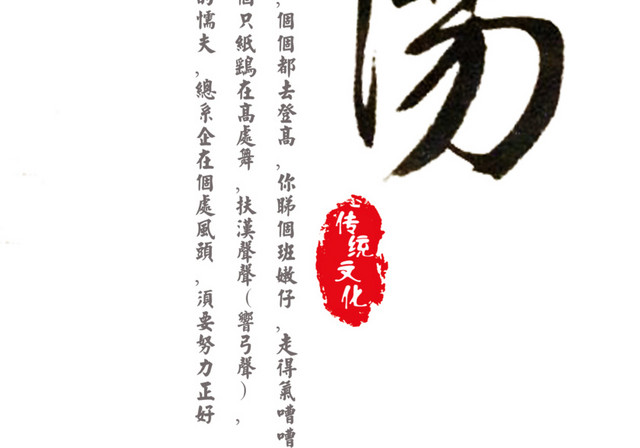 傳统文化
，個個都去登高，你睇個班嫩仔，走得氣嘈嘈
個只紙鷂在高處舞，扶漢聲聲（響弓聲），
的懦夫，總系企在個處風頭，須要努力正好